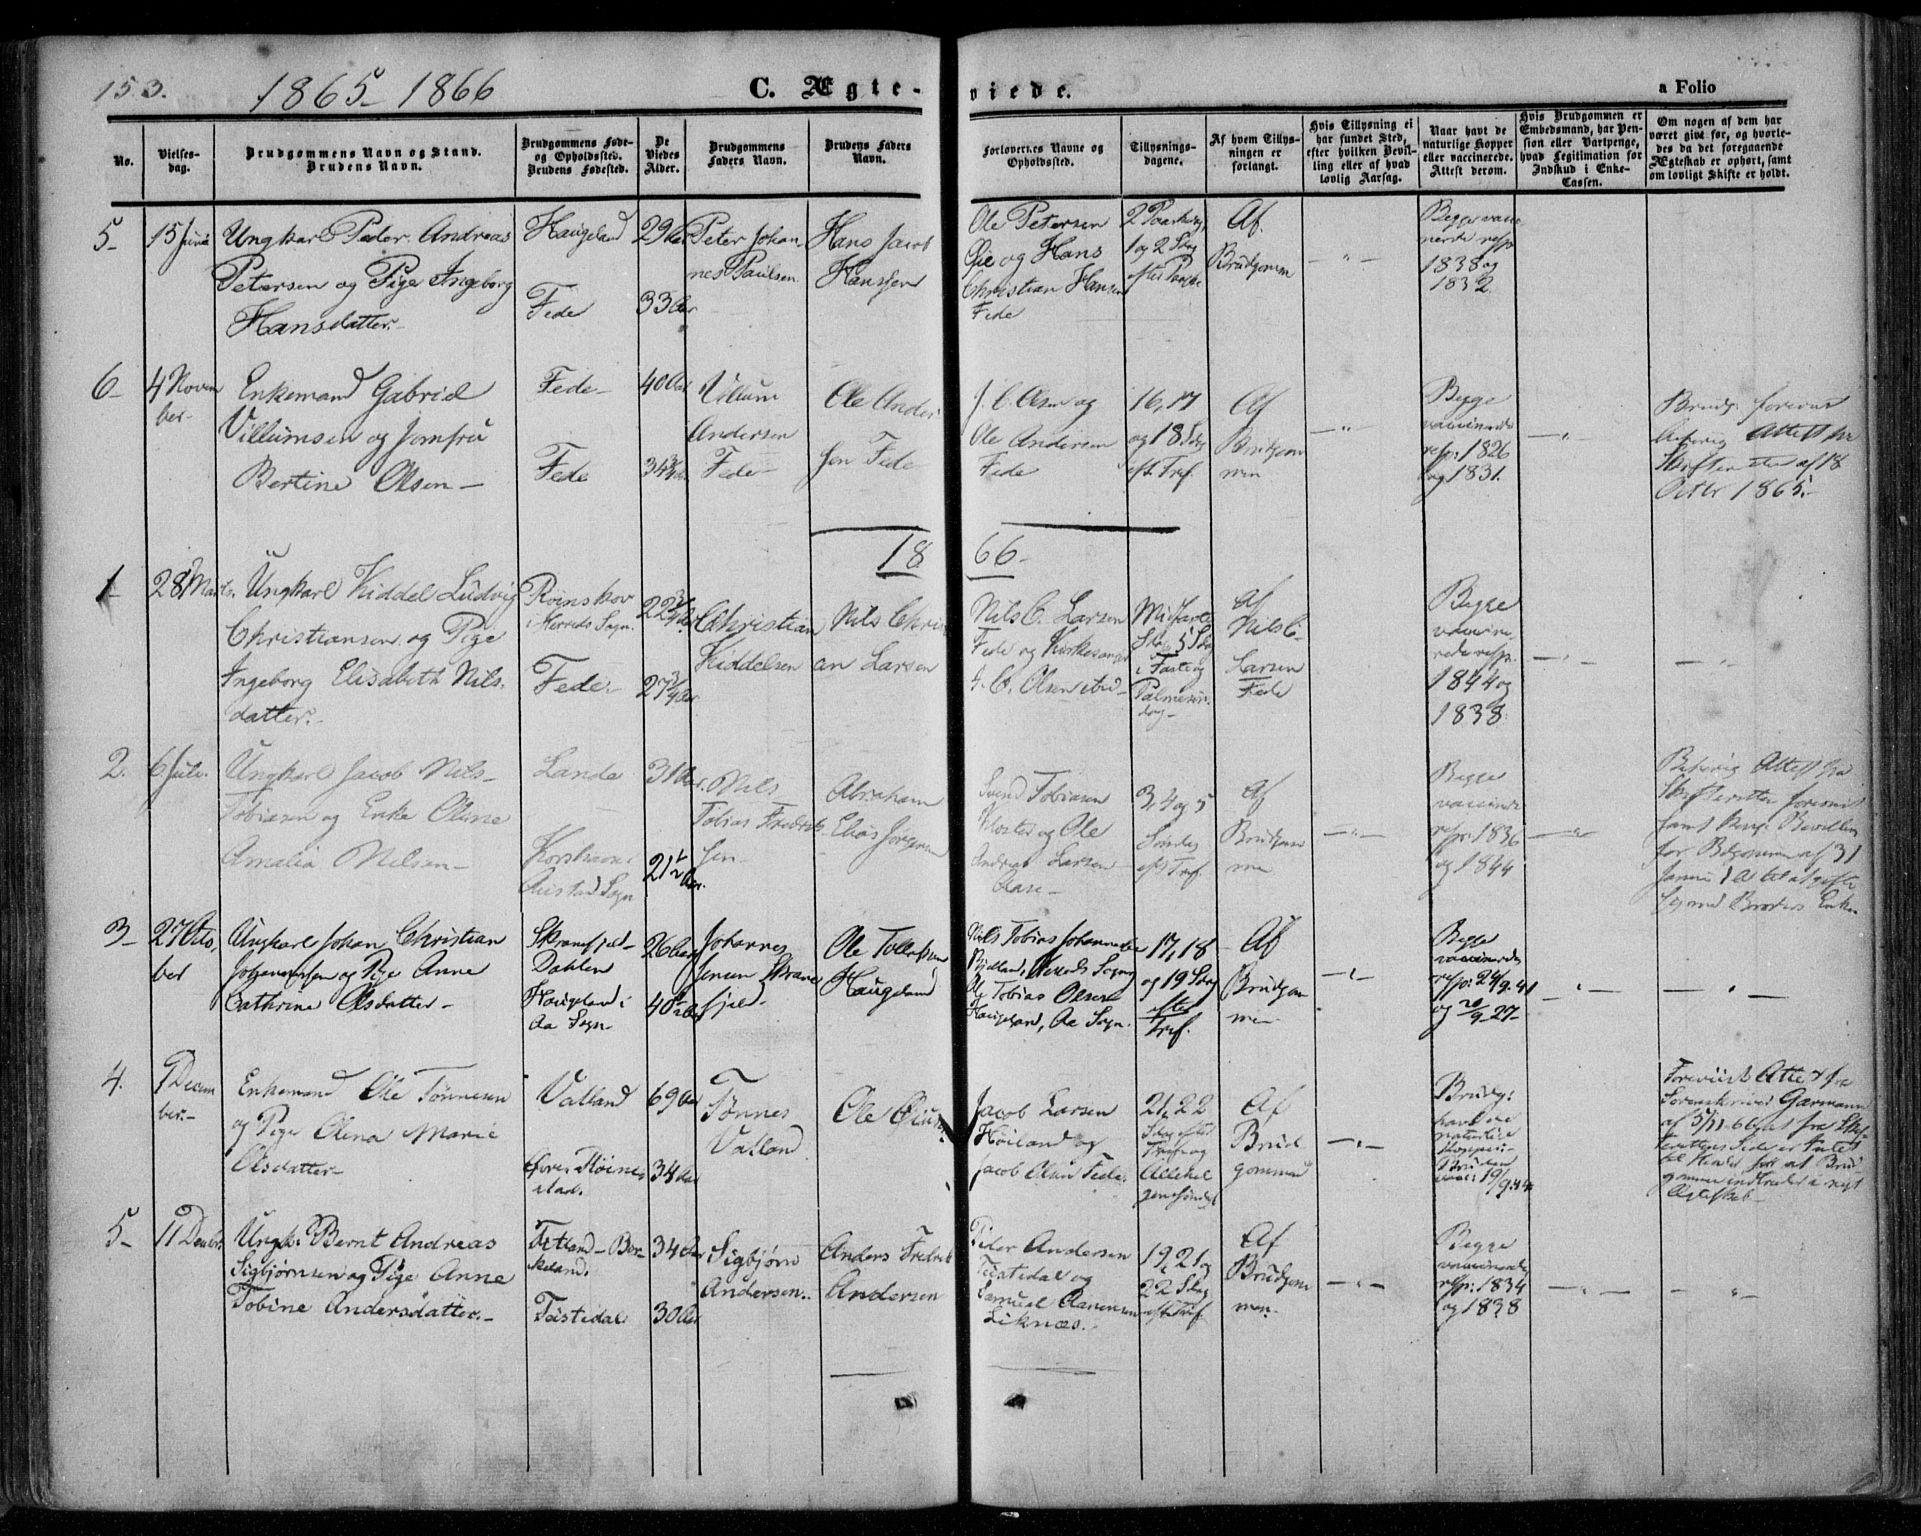 153.
1865-1866
C. Ægte-
viede.
a Folio
No.
Vielses-
dag.
Brudgommens Navn og Stand.
Brudens Navn.
Brudgommens Føde-
og Opholdssted.
Brudens Fødested.
De
Viedes
Alder.
Brudgommens
Faders Navn.
Brudens Faders
Navn.
Forlovernes Navne og
Opholdssted.
Tillysnings-
dagene.
Af hvem Tillys-
ningen er
forlangt.
Hvis Tillysning ei
har fundet Sted,
efter hvilken Bevil-
ling eller af hvad
lovlig Aarsag.
Naar havt de
naturlige Kopper
eller vaccinerede.
Attest derom.
Hvis Brudgommen er
Embedsmand, har Pen-
sion eller Vartpenge,
hvad Legitimation for
Indskud i Enke-
Cassen.
Om nogen af dem har
været gift før, og hvorle-
des da det foregaaende
Ægteskab er ophørt, samt
om lovligt Skifte er holdt.
5-
15 Juni
Ungkarl Peder Andreas
Petersen og Pige Ingeborg
Hansdatter-
Haugeland
Fede
29 Aar
33 Aar
Peter Johan
nes Paulsen
Hans Jacob
Hanssen
Ole Petersen
Øie og Hans
Christian Hansen
Fede
2 Paaskedag
1 og 2 Sdag
efter Paaske
Af
Brudgomm
-"-
Begge vacci
nerede resp.
1838 og
1832.
6-
4 Novem
ber-
Enkemand Gabriel
Villumsen og Jomfru
Bertine Olsen-
Fede-
Fede
40 Aar
34¾ Aar
Villum
Andersen
Fede-
Ole Ander
sen Fede
J. C. Olsen og
Ole Andersen
Fede
16, 17
og 18 Sdag
eft. Tref.
Af
Brudgom
men
-"-
Begge
vaccinerede
resp: 1826
og 1831.
-"-
Brudg. foreviist
behørig Attest fra
Skifteretten af 18
Octbr 1865.-
18 66-
1-
28 Marts.
Ungkarl Kiddel Ludvig
Christiansen og Pige
Ingeborg Elisabeth Nils-
datter.-
Roinskov
i Herreds Sogn.
Fede-
22¾ Aar
27¾ Aar
Christian
Kiddelsen
Nils Chris
an Larsen
Nils C. Larsen
Fede og Kirkesanger
J. C. Olsen ibid-
Midfaste
Sdag, 5 Sdag
i Faste og
Palmesøn-
dag-
Af
Nils C-
Larsen
Fede
Begge
vaccine-
rede resp.
1844 og
1838.
-"-
-"-
2.
6 Juli.
Ungkarl Jacob Nils-
Tobiasen og Enke Oline
Amalia Nilsen-
Lande
Korshavn i
Austad Sogn
31 Aar.
21½ Aar.
Nils
Tobias Fredrik-
sen-
Abraham
Elias Jørgensen
Svend Tobiasen
Kloster og Ole
Andreas Larsen
Aase-
3, 4 og 5
Søndag
eft Tref.
Af
Brudgom
men
-"-
Begge
vaccinerede
resp: 1836
og 1844
-"-
Behørig Attest fra
Skifteretten foreviist
samt Kongl. Bevilling
for Brudgommen af 31
at gifte
sig med Broders Enke
3-
27 Octo-
ber
Ungkarl Johan Christian
Johannessen og Pige Anne
Cathrine Olsdatter-
Skranefjeld-
Dahlen
Haugeland i
Aa Sogn-
26 Aar
40½ Aar
Johannes
Jensen Skrane
fjeld-
Ole Tollefsen
Haugeland
Nils Tobias Johannessen
Bydland, Herreds Sogn
og Tobias Olsen
Haugeland, Aa Sogn.
17, 18
og 19 Sdag
efter
Tref.
Af
Brudgom
men-
-"-
Begge
vaccinerede
resp: 24/9-41
og 20/9-27-
-"-
-"-
4.
1 Decem
ber.-
Enkemand Ole Tønnesen
og Pige Olena Marie
Olsdatter-
Valland
øvre Røines-
stad.
69 Aar
34 Aar
Tønnes
Valland
Ole
Jacob Larsen
Høiland og
Jacob Olsen Fede.
21, 22
Sdag efter
Tref. og
Allehel
gensøndag
Af
Brud
gommen
-"-
Brudg:
havt de
naturlige
Kopper-
Bruden
vacc: 19/9-44
Foreviist Attest fra
Sorenskriver Garmann
af 5/11-66 at fra Skif-
terettens Side er Intet
til Hinder for at Brud-
gommen indtræder i nyt
Ægteskab-
5-
11 Decbr.
Ungk. Bernt Andreas
Sigbjørnsen og Pige Anne
Tobine Andersdatter.-
Fetland-Ber-
keland.
Teistedal
34 Aar
30 Aar
Sigbjørn
Andersen.
Anders Fredrik
Andersen
Peder Andersen
Teistedal og
Samuel Aanensen
Liknæs.
19, 21 og
22 Sdag
eft. Tref.
Af
Brudgom
men.
-"-
Begge
vaccinerede
resp: 1834
og 1838
-"-
-"-